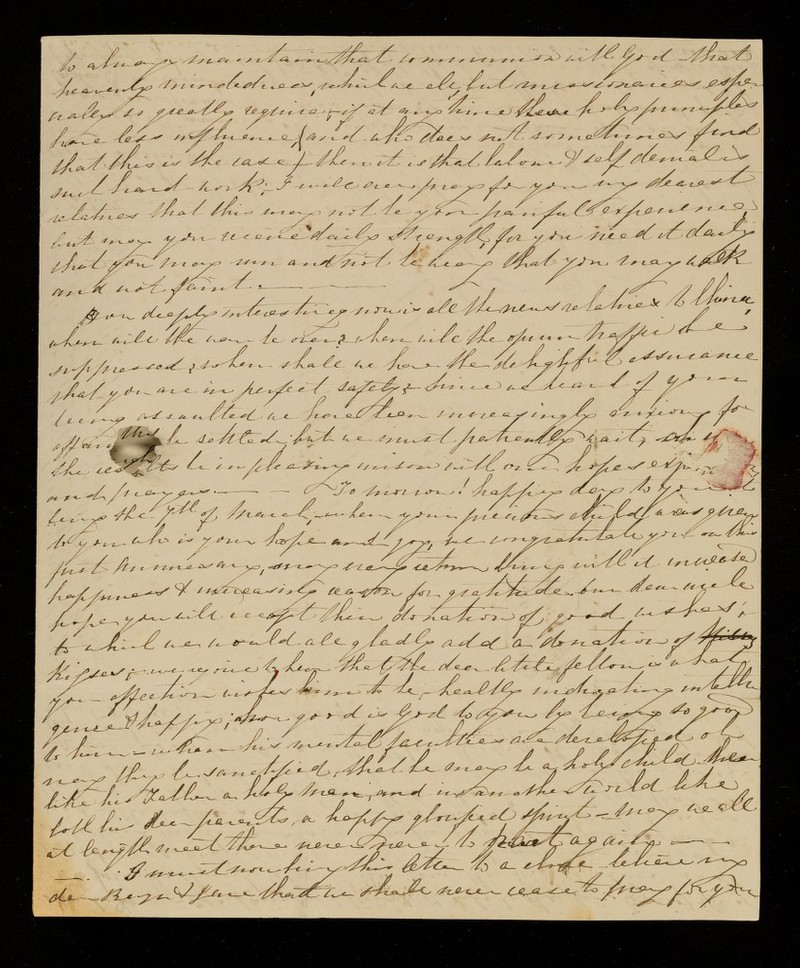 to always maintain that communion with God that
heavenly mindedness, which we all, but missionaries espe-
cially so greatly require; if at any time these holy principles
have less influence (and who does not sometimes find
that this is the case) then it is that labour & self denial is
such hard work; I will ever pray for you my dearest
relatives that this may not be your painful experience,
but may you receive daily strength, for you need it daily
that you may run and not be weary that you may walk
and not faint. —
How deeply interesting now is all the news relative to China,
when will the war be over? when will the opium traffic be
suppressed? when shall we have the delightful assurance
that you are in perfect safety? Since we heard of your
being assaulted we have been increasingly anxious for
affairs to be settled; but we must patiently wait,
the results be in pleasing unison with our hopes
and prayers — To morrow! happy day to you
being the 7th of March, when your precious child was given
to you who is your hope and joy, we congratulate you on this
first Anniversary, may every return bring with it increased
happiness & increasing reason for gratitude. our dear uncle
hope you will accept their donation of good wishes;
to which we would all gladly add a donation of
Kisses; we rejoice to hear that the dear little fellow is what
your affection wishes him to be, healthy indicating intelli-
gence & happy; how good is God to you by being so good
to him — when his mental faculties are developed o
may they be sanctified, that he may be a holy child
like his Father a holy man, and in another world like
both his dear parents, a happy glorified spirit — may we all
at length meet there never never to part again —
I must now bring this letter to a close believe my
dear Benjn & Jane that we shall never cease to pray for you